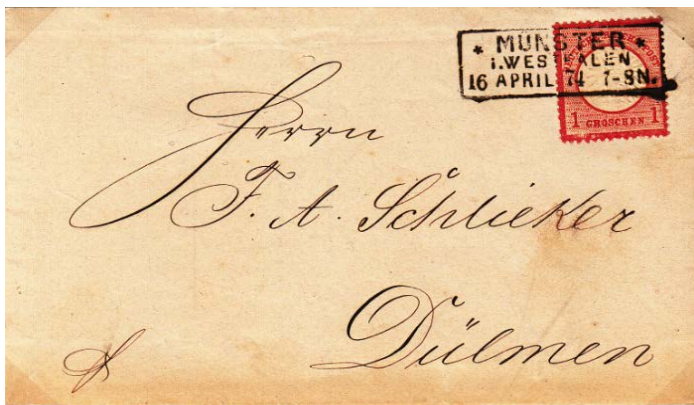 * MÜNSTER *
i. WESTFALEN
16 APRIL 74 7-8N.
1 GROSCHEN 1
Herrn
F. A. Schlieker
Dülmen